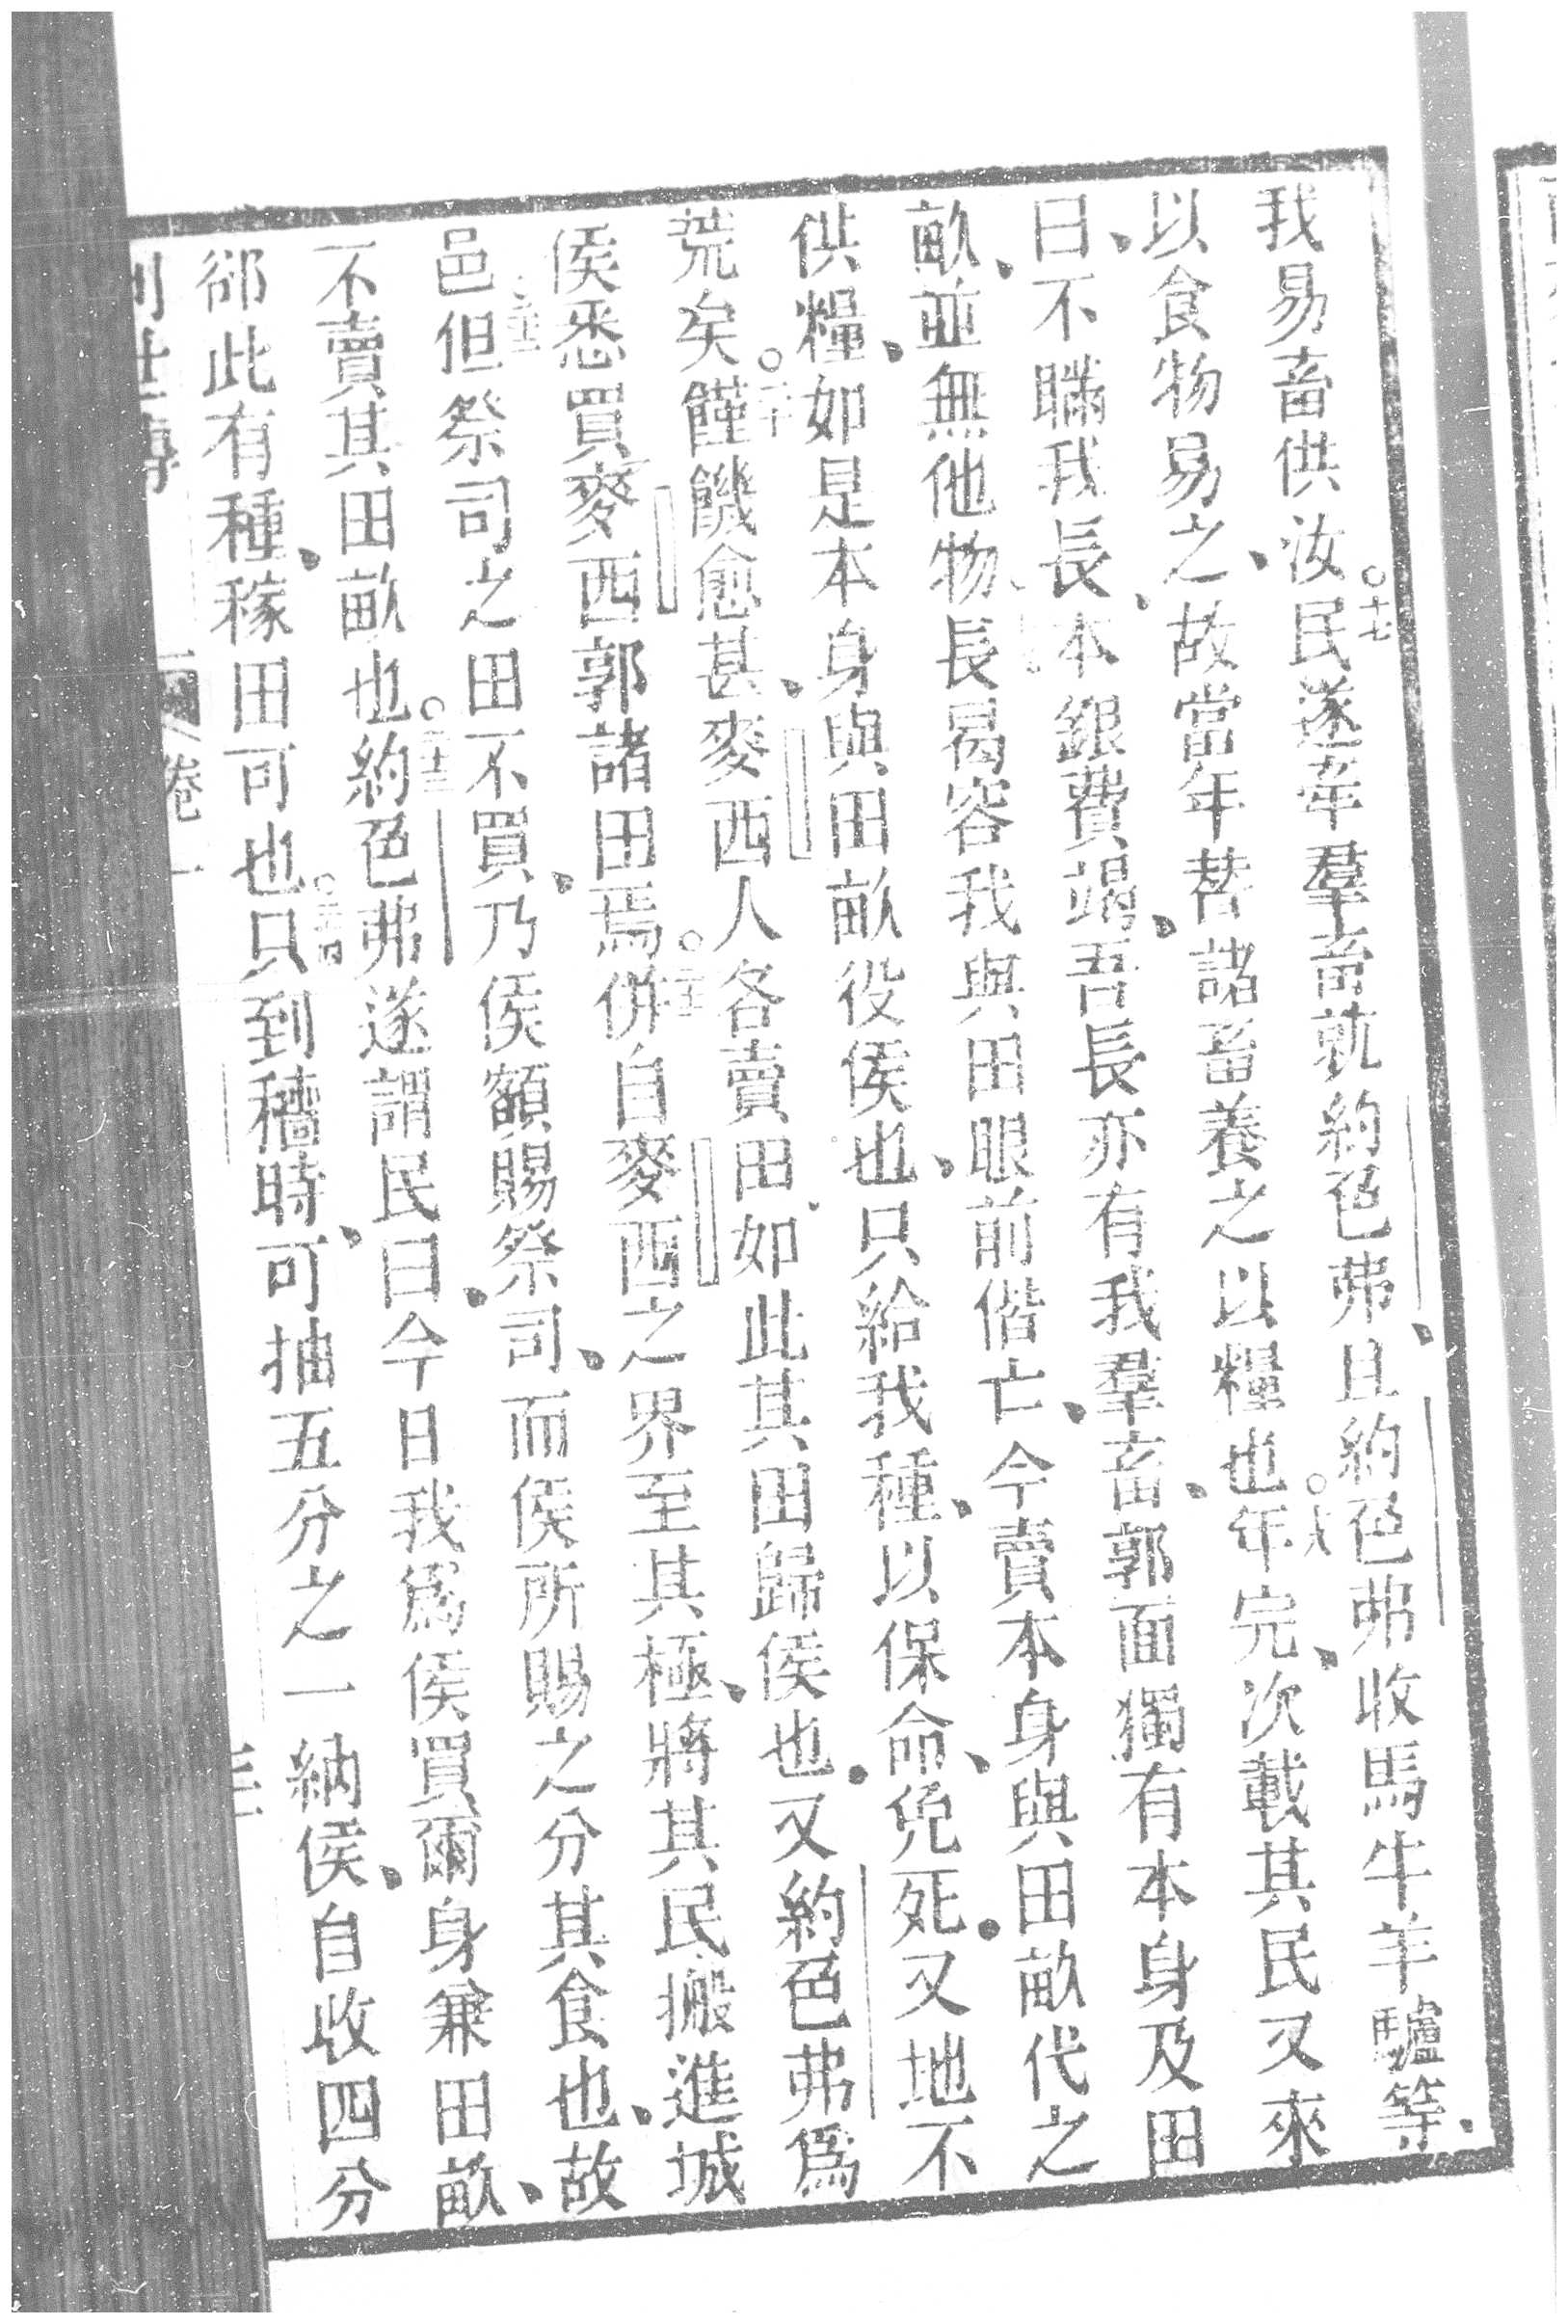 我易畜供汝民遂牽羣畜就約色弗且約色弗收馬牛羊驢等
以食物易之故當年替諸畜養之以糧也年完次載其民又來
曰不瞞我長本銀費竭吾長亦有我羣畜郭面獨有本身及田
畝並無他物長曷容我與田眼前偕亡今賣本身與田畝代之
供糧如是本身與田畝役侯也只給我種以保命免死又地不
荒矣饉饑愈甚麥西人各賣田如此其田歸侯也又約色弗爲
侯悉買麥西郭諸田焉併自麥西之界至其極將其民搬進城
邑但祭司之田不買乃侯額賜祭司而侯所賜之分其食也故
不賣其田畝也約色弗遂謂民曰今日我爲侯買爾身兼田畝
郤此有種稼田可也只到穡時可抽五分之一納侯自收四分
卷一